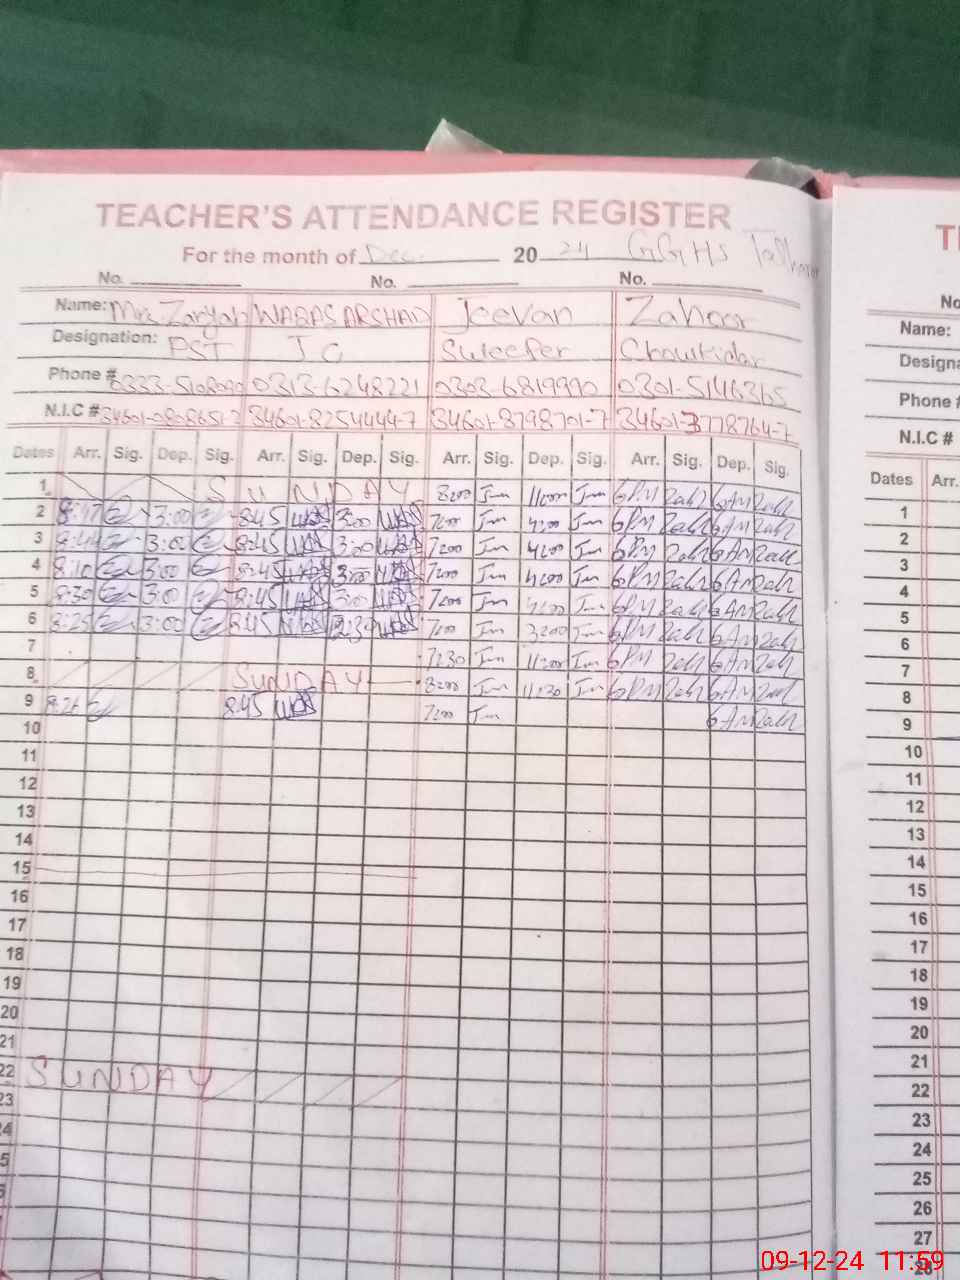 TEACHER'S ATTENDANCE REGISTER
For the month of Dec. 2024 GGHS
No. No. No.
Name: Mrs Zaryab WAQAS ARSHAD Jeevan Zahoor
Designation: PST J.C Sweeper Chowkidar
Phone # 0333-5108090 0313-6248221 0303-6819990 0301-5146365
N.I.C # 34601-0808651-2 34601-8254444-7 34601-8798701-7 34601-3778764-7
Dates Arr. Sig. Dep. Sig. Arr. Sig. Dep. Sig. Arr. Sig. Dep. Sig. Arr. Sig. Dep. Sig.
1 SUNDAY 8:00 1100 6 PM Zah 6 AM Zah
2 3:00 8:45 3:00 7:00 4:00 6 PM Zah 6 AM Zah
3 3:00 8:45 3:00 7:00 4:00 6 PM Zah 6 AM Zah
4 8:10 3:00 8:45 3:00 7:00 4:00 6 PM Zah 6 AM Zah
5 8:30 3:00 8:45 3:00 7:00 4:00 6 PM Zah 6 AM Zah
6 8:25 3:00 8:45 12:30 7:00 3:00 6 PM Zah 6 AM Zah
7 7:30 11:30 6 PM Zah 6 AM Zah
8 SUNDAY 8:00 11:30 6 PM Zah 6 AM Zah
9 8:26 8:45 7:00 6 AM Zah
10
11
12
13
14
15
16
17
18
19
20
21
22 SUNDAY
23
No
Name:
Designa
Phone #
N.I.C #
Dates Arr.
1
2
3
4
5
6
7
8
9
10
11
12
13
14
15
16
17
18
19
20
21
22
23
24
25
26
27
28
09-12-24 11:59